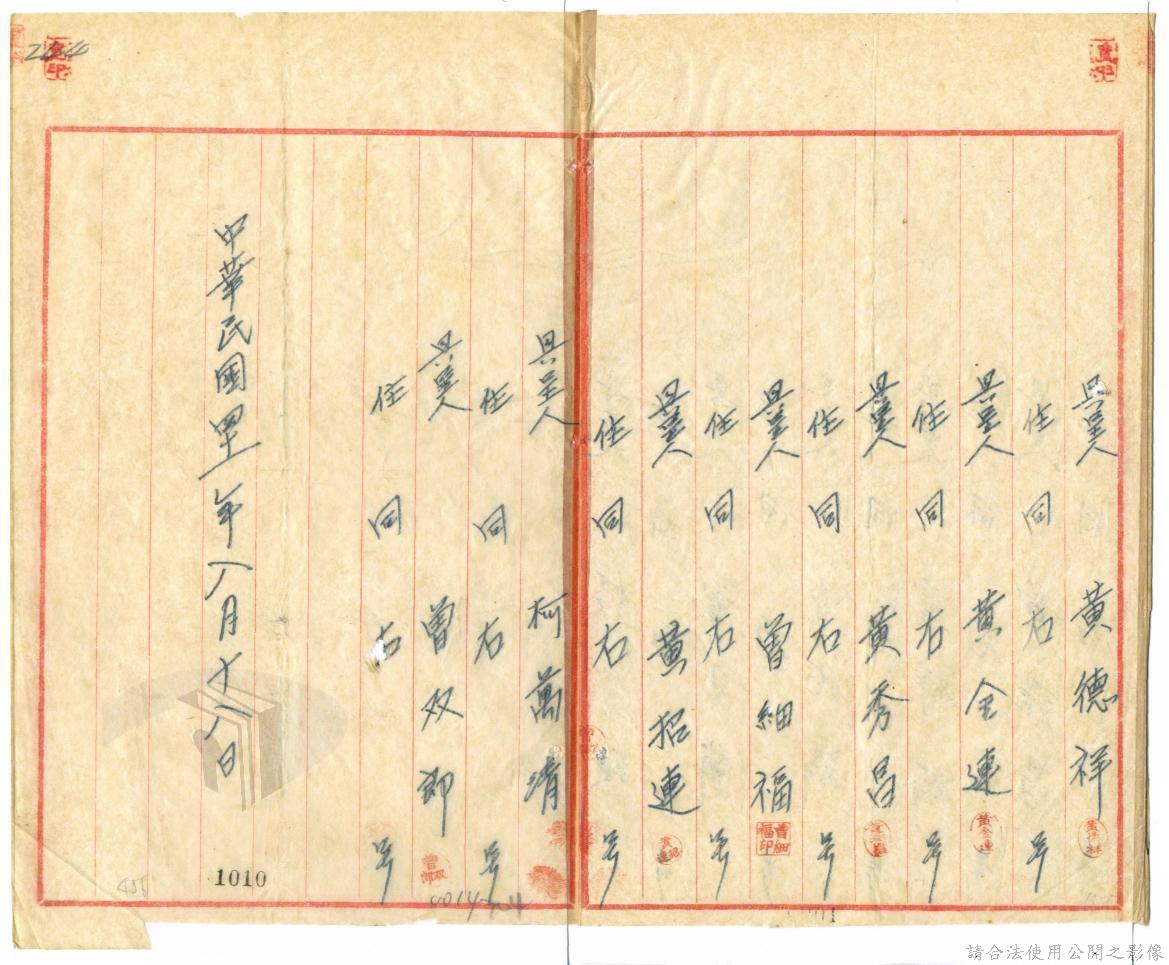 具呈人 黄德祥
住 同右 号
具呈人 黄金連
住 同右 号
具呈人 黄秀昌
住 同右 号
具呈人 曾細福
住 同右 号
具呈人 黄招連
住 同右 号
具呈人 柯萬清
住 同右 号
具呈人 曾双郎
住 同右 号
中華民國 年八月十八日
黄金連
曾細福印
1010
請合法使用公開之影像